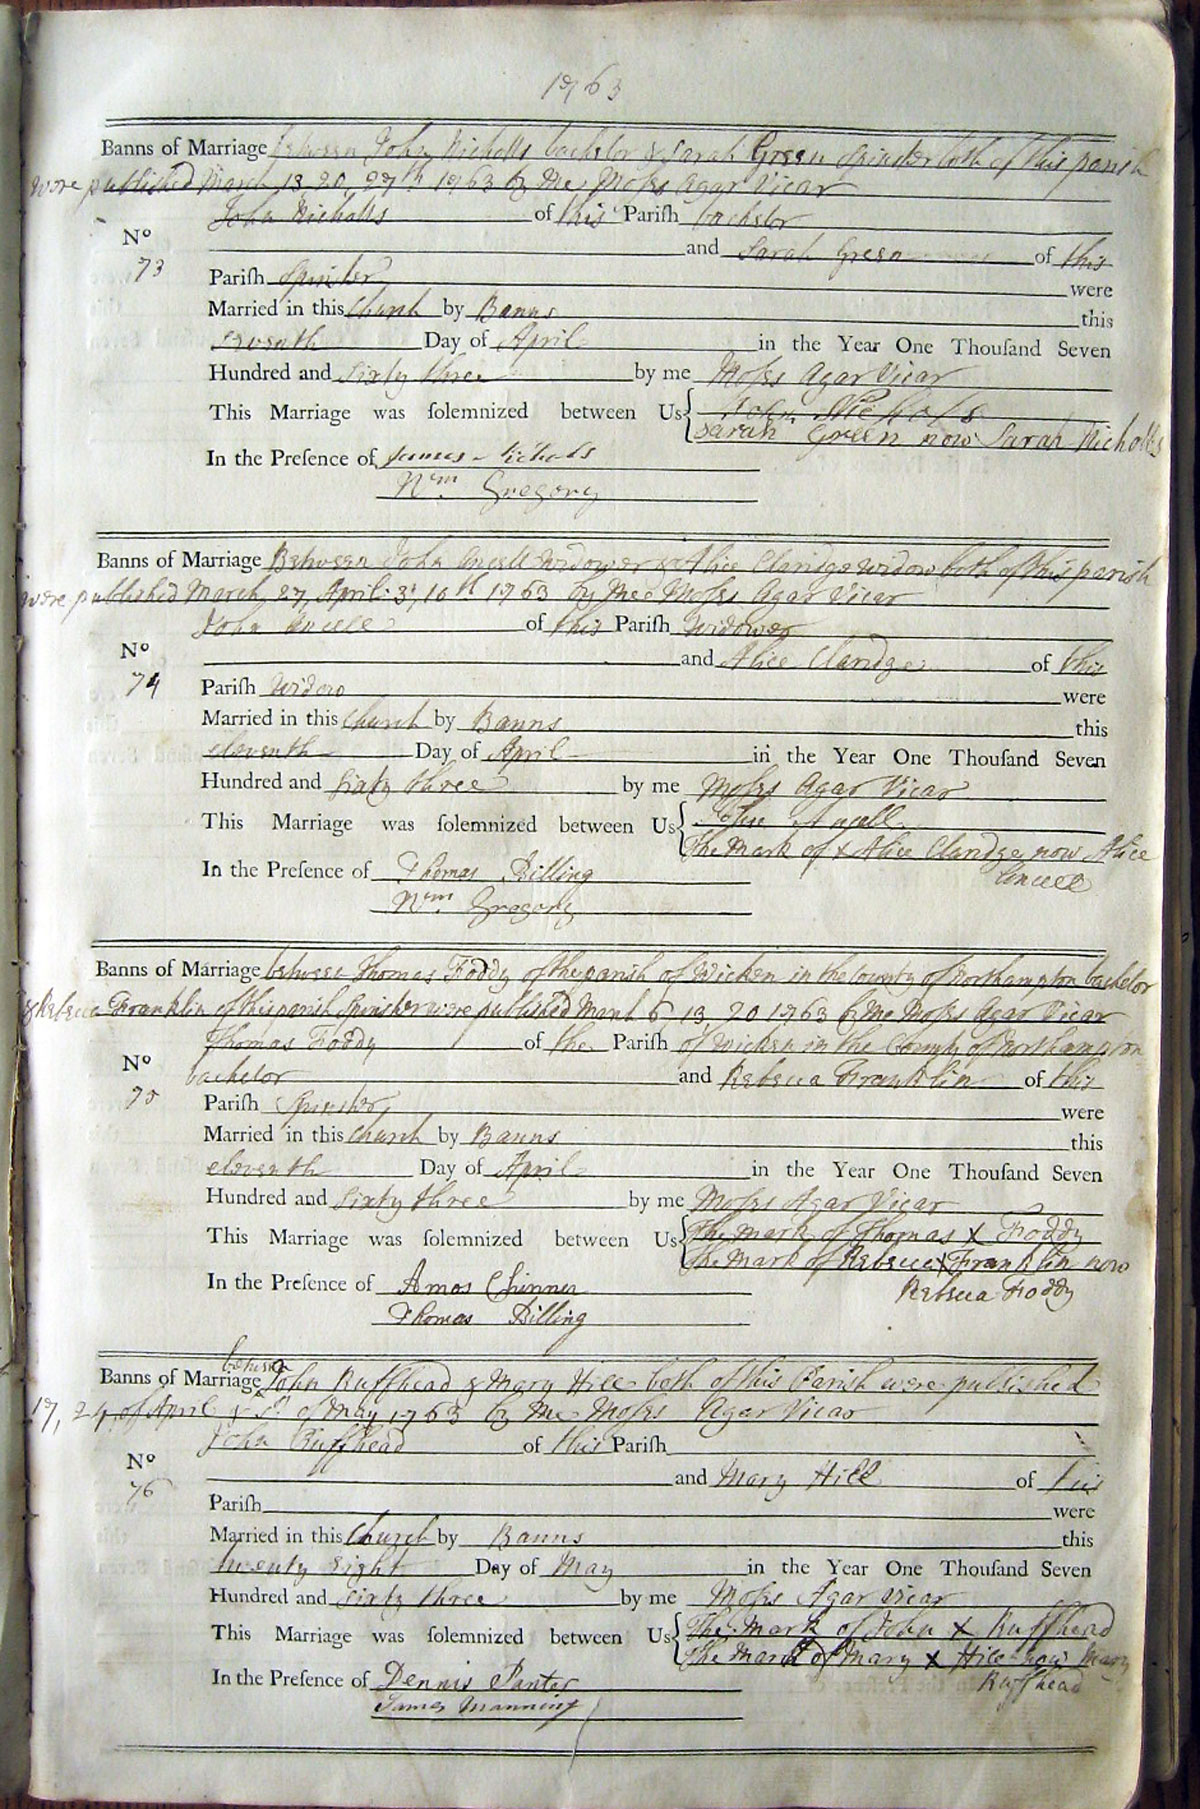 1763
Banns of Marriage between John Nicholls bachelor & Sarah Green Spinster both of this parish
were published March 13, 20, 27th 1763 by me Moses Agar Vicar
John Nicholls of this Pariſh bachelor
No
73
and Sarah Green of this
Pariſh Spinster were
Married in this Church by Banns this
seventh Day of April in the Year One Thouſand Seven
Hundred and sixty three by me Moses Agar Vicar
This Marriage was ſolemnized between Us John Nichols
Sarah Green now Sarah Nicholls
In the Preſence of James Nicholls
Wm. Gregory
Banns of Marriage Between John Uncell Widower & Alice Claridge widow both of this parish
were published March 27, April 3, 10th 1763 by mee Moses Agar Vicar
John Uncell of this Pariſh Widower
No
74
and Alice Claridge of this
Pariſh Widow were
Married in this Church by Banns this
eleventh Day of April in the Year One Thouſand Seven
Hundred and sixty three by me Moses Agar Vicar
This Marriage was ſolemnized between Us John
The Mark of x Alice Claridge now Alice
Uncell
In the Preſence of Thomas Billing
Wm. Gregory
Banns of Marriage between Thomas Foddy of the parish of Wicken in the County of Northampton bachelor
& Rebecca Franklin of this parish Spinster were published March 6 13, 20 1763 by Me Moses Agar Vicar
Thomas Foddy of the Pariſh of Wicken in the County of Northampton
No
75
bachelor and Rebecca Franklin of this
Pariſh Spinster were
Married in this Church by Banns this
eleventh Day of April in the Year One Thouſand Seven
Hundred and sixty three by me Moses Agar Vicar
This Marriage was ſolemnized between Us The mark of Thomas X Foddy
The Mark of Rebecca X Franklin now
Rebecca Foddy
In the Preſence of Amos
Thomas Billing
between
Banns of Marriage John Ruffhead & Mary Hill both of this Parish were published
17, 24 of April & of May 1763 by Me Moses Agar Vicar
John Ruffhead of this Pariſh
No
76
and Mary Hill of this
Pariſh were
Married in this Church by Banns this
twenty eight Day of May in the Year One Thouſand Seven
Hundred and sixty three by me Moses Agar Vicar
This Marriage was ſolemnized between Us The Mark of John X Ruffhead
The Mark of Mary X Hill now Mary
Ruffhead
In the Preſence of Dennis Panter
James Manning